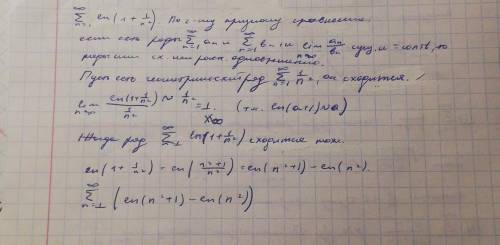 ∑_{n=1}^{∞} ln(1 + 1/n²). По 2-му признаку сравнения
если есть ряды ∑_{n=1}^{∞} an и ∑_{n=1}^{∞} bn и lim_{n→∞} an/bn сущ. и = const, то
ряды сх. или расх. одновременно.
Пусть есть геометрический ряд ∑_{n=1}^{∞} 1/n², он сходится.
lim_{n→∞} ln(1+1/n²) ~ 1/n² / 1/n² = 1. (т.к. ln(a+1) ~ a)
ряд ∑_{n=1}^{∞} ln(1+1/n²) сходится тоже.
ln(1 + 1/n²) = ln((n²+1)/n²) = ln(n²+1) - ln(n²).
∑_{n=1}^{∞} (ln(n²+1) - ln(n²))